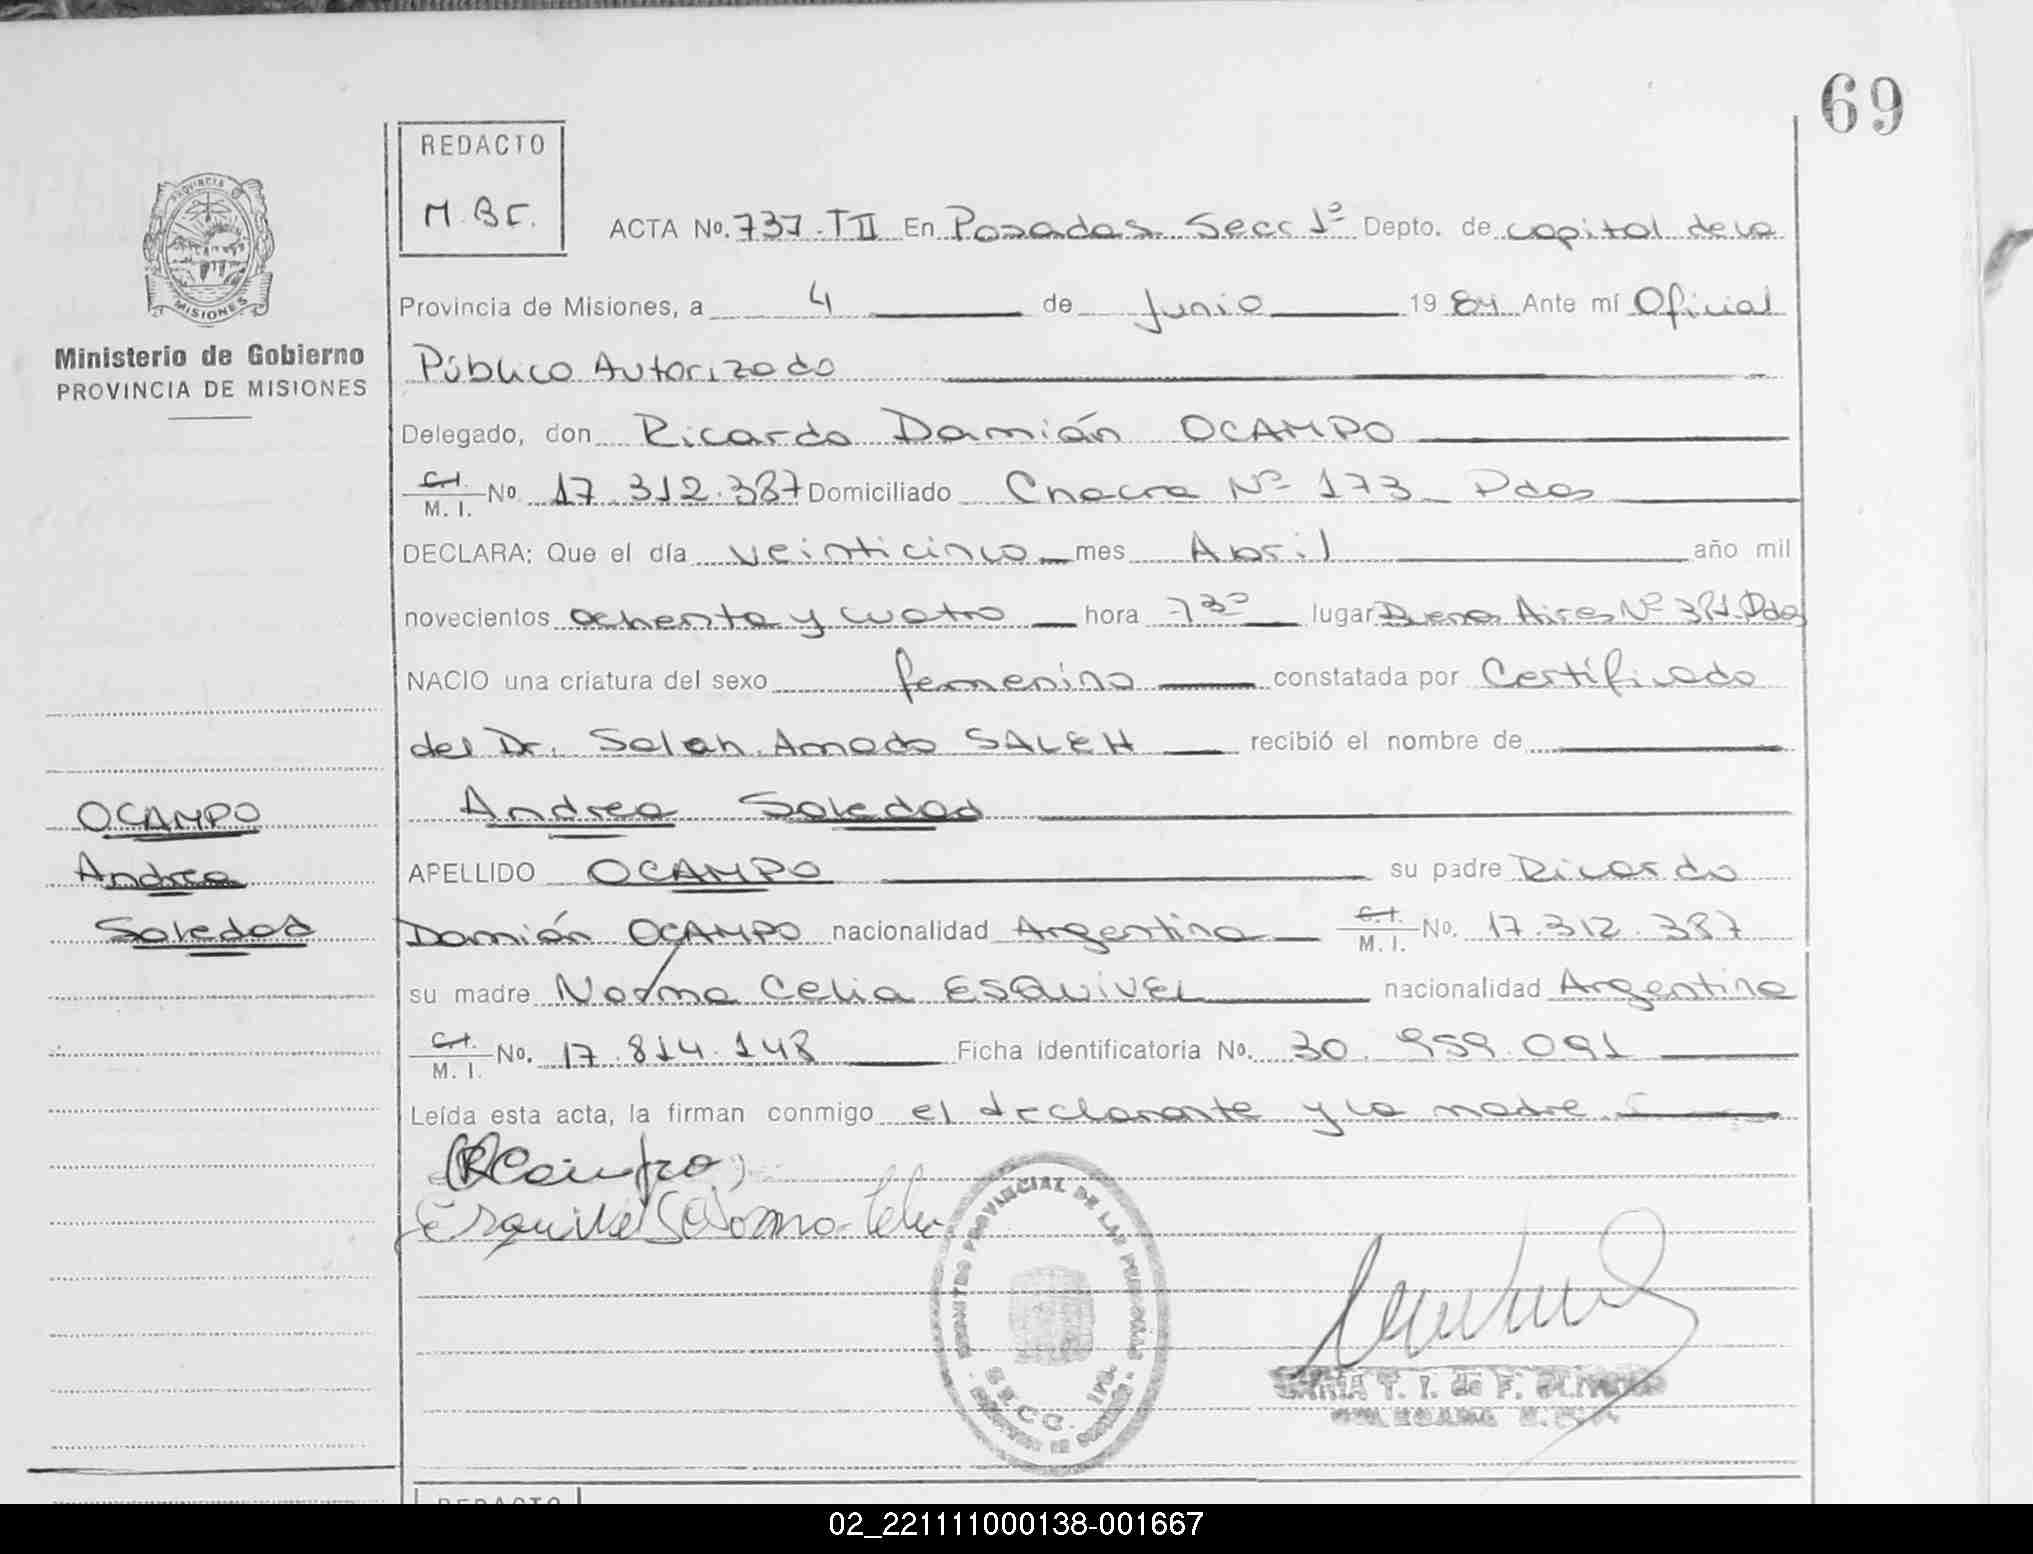 69
REDACTO
M.BE.
PROVINCIA DE
MISIONES
Ministerio de Gobierno
PROVINCIA DE MISIONES
ACTA No. 737.TII En Posadas Secc 1ª Depto. de capital de la
Provincia de Misiones, a 4 de Junio 1984 Ante mí Oficial
Público Autorizado
Delegado, don Ricardo Damián OCAMPO
C.I. M. I. No 17.312.387 Domiciliado Chacra Nº 173 Pdas
DECLARA; Que el día veinticinco mes Abril año mil
novecientos ochenta y cuatro hora 7 30 lugar Buenos Aires Nº Pdas
NACIO una criatura del sexo femenino constatada por Certificado
del Dr. Saleh Amado SALEH recibió el nombre de
Andrea Soledad
APELLIDO OCAMPO su padre Ricardo
Damián OCAMPO nacionalidad Argentina C.I. M. I. No. 17.312.387
su madre Norma Celia ESQUIVEL nacionalidad Argentina
C.I. M. I. No. 17.814.148 Ficha Identificatoria No. 30.959.091
Leída esta acta, la firman conmigo el declarante y la madre
OCAMPO
Andrea
Soledad
Esquivel Norma Celia
PROVINCIAL DE LAS PERSONAS
T. I. de F.
REDACTO
02_221111000138-001667